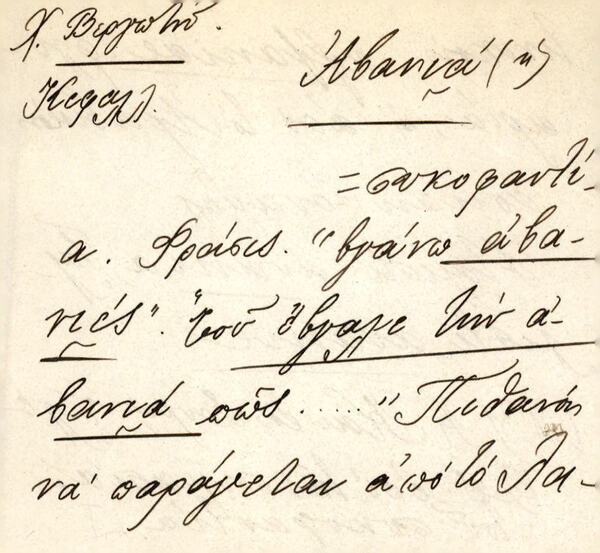 Χ. Βεργωτῆ.
Κεφαλλ.
Ἀβανιά (ἡ)
= συκοφαντί-
α. Φράσις. "βγάνω ἀβα-
νιές". "τοῦ ἔβγαλε τὴν ἀ-
βανιά πῶς ....." Πιθανόν
νά παράγεται ἀπό τό Λα-